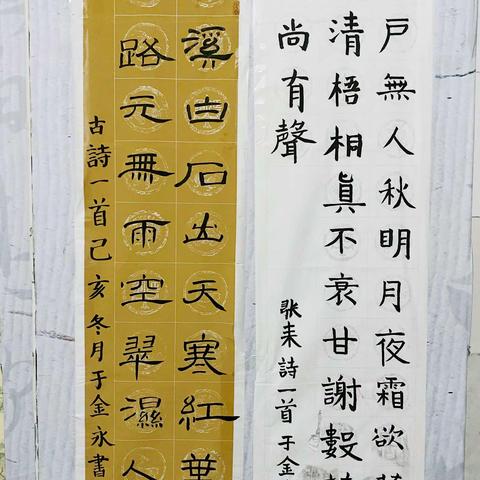 戶無人秋眀月夜霜欲
清梧桐眞不衰甘謝數
尚有聲
張耒詩一首于金
溪白石出天寒紅葉
路元無雨空翠濕人
古詩一首己亥冬月于金永書